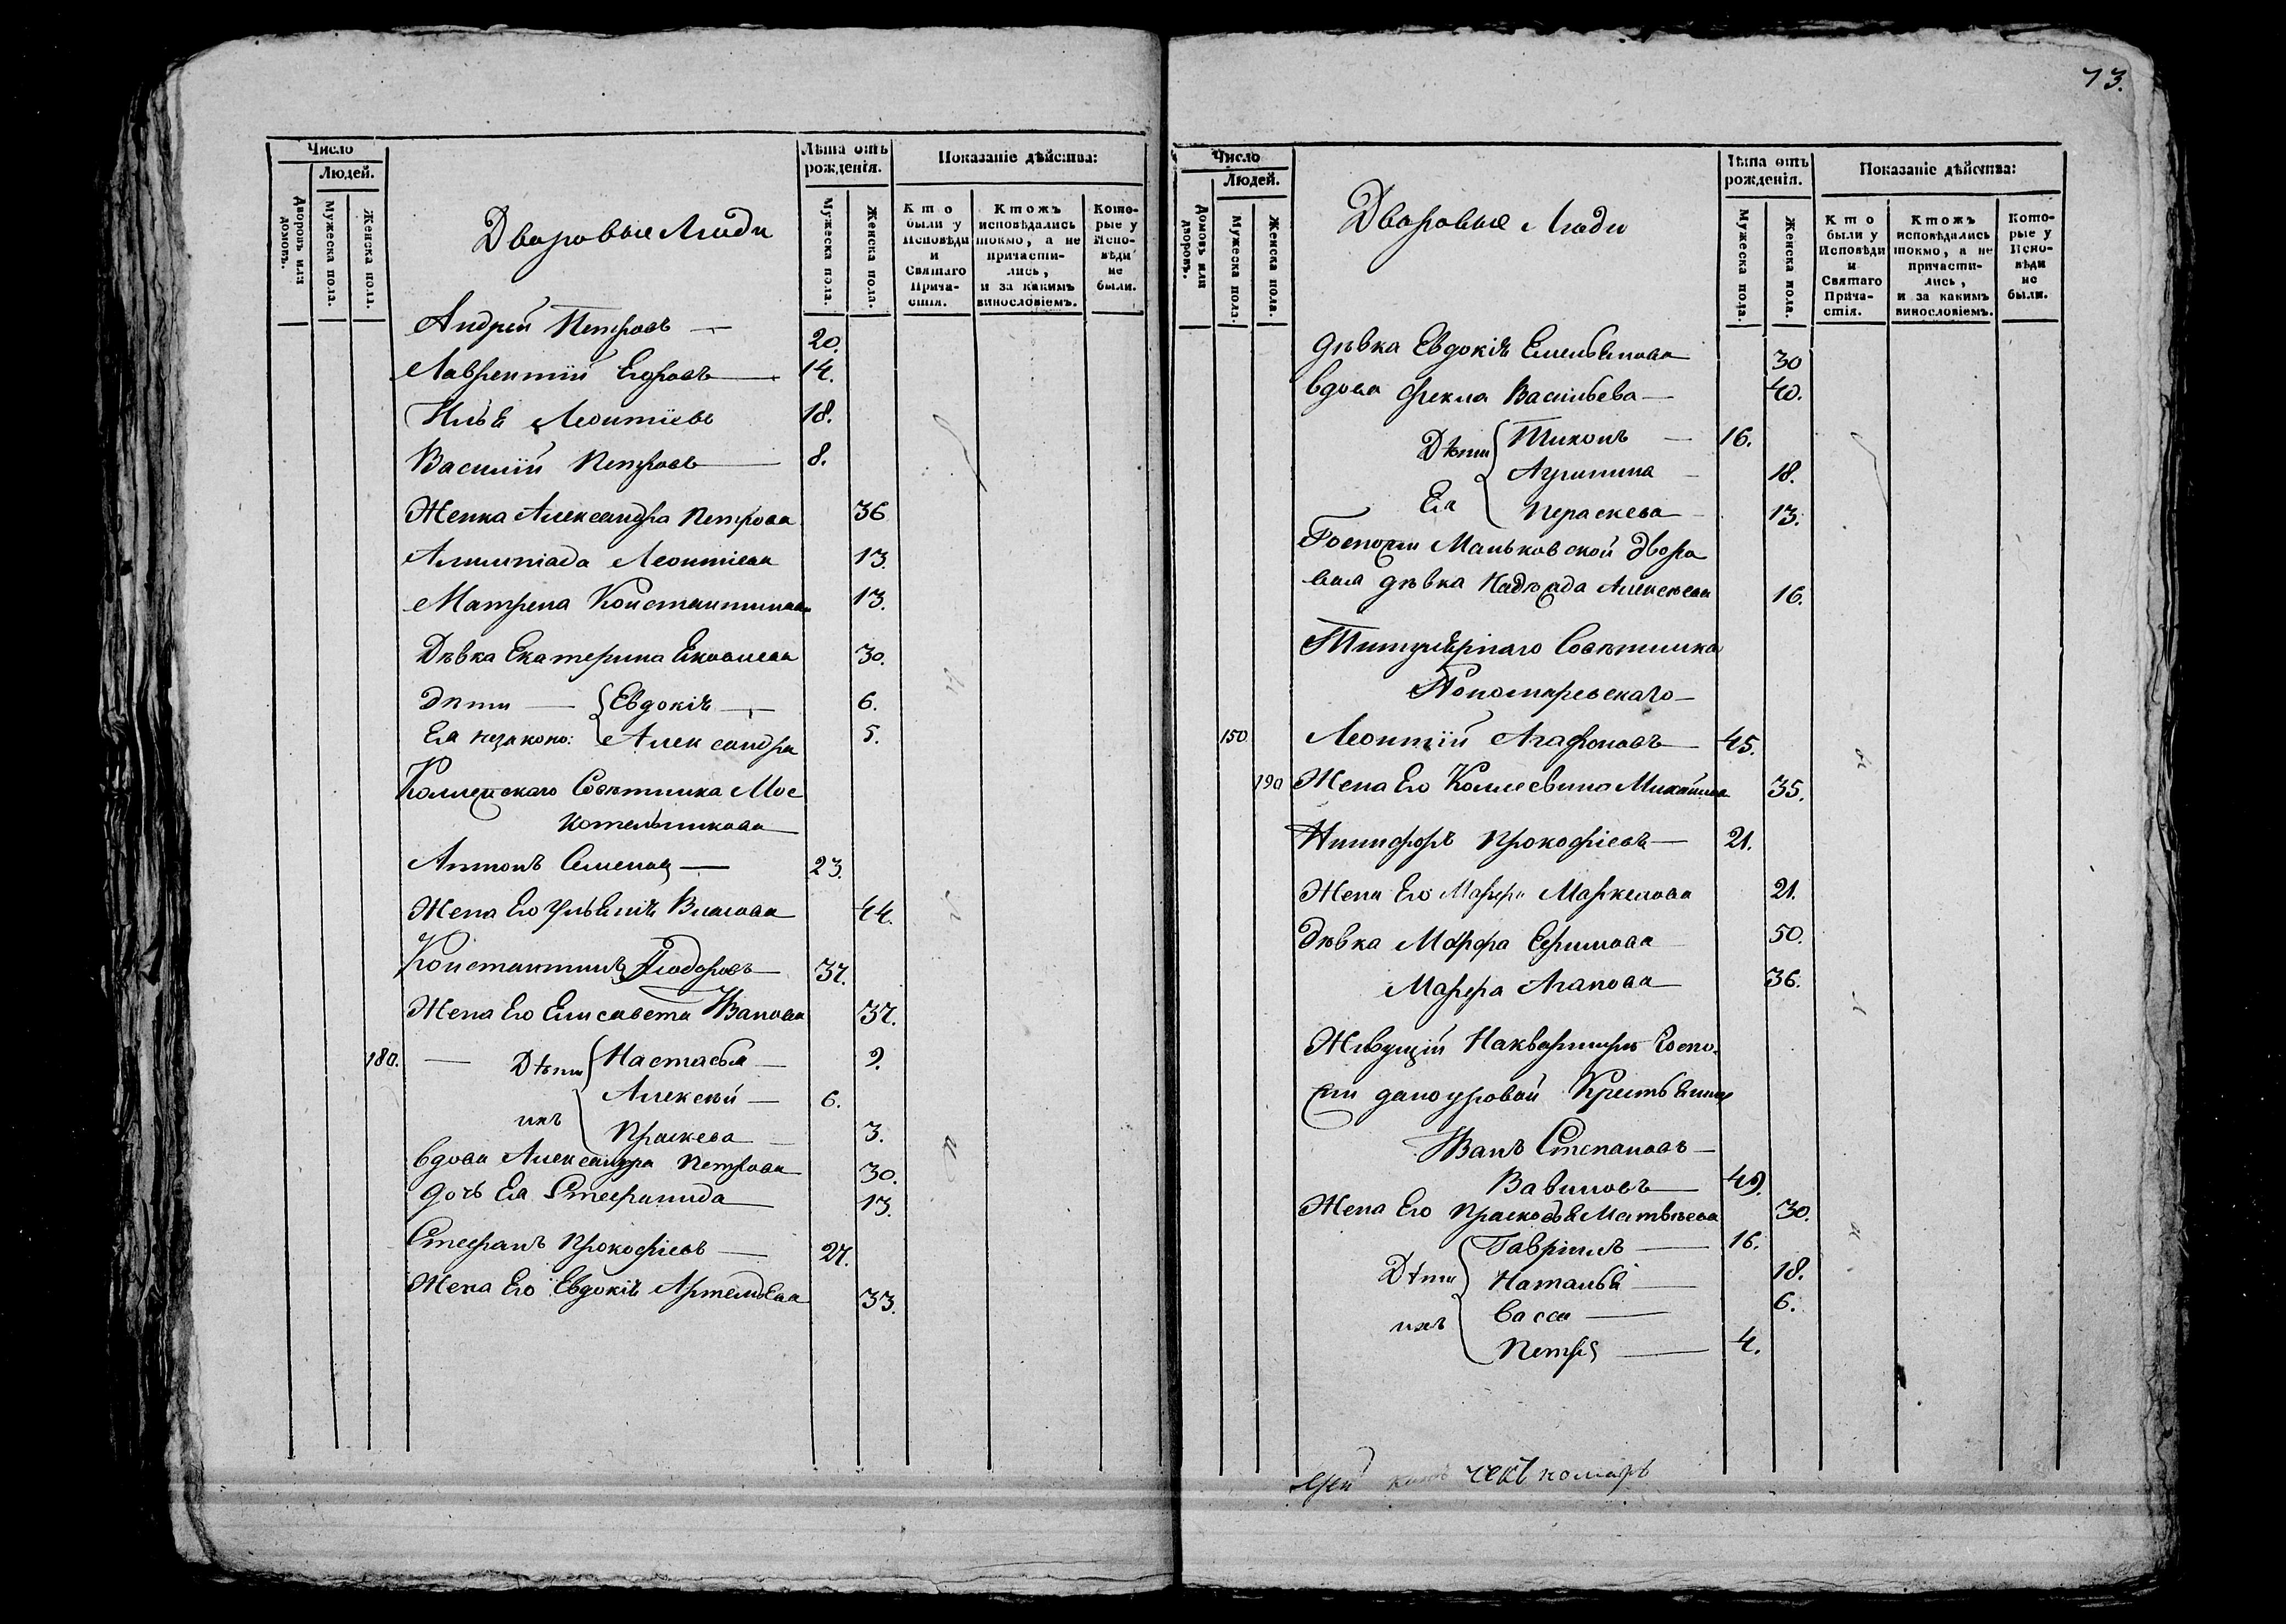 73.
Число
Людей.
Дворовъ или домовъ.
Мужеска пола.
Женска пола.
Дворовые Люди
Лѣта отъ рожденія.
Мужеска пола.
Женска пола.
Показаніе дѣйства:
Кто были у Исповѣди и Святаго Прича-стія.
Ктожъ исповѣдались токмо, а не причасти-лись, и за какимъ винословіемъ.
Кото-рые у Испо-вѣди не были.
Андрей Петровъ — 20.
Лаврентій Егоровъ — 14.
Илья Леонтіевъ 18.
Василій Петровъ — 8.
Женка Александра Петрова 36
Алимпіада Леонтіева 13.
Матрена Константинова 13.
Дѣвка Екатерина Яковлева 30.
Дѣти — Евдокія — 6.
Ея незакон: Александра 5.
Коллежскаго Совѣтника Мос
Котельникова
Антонъ Семеновъ — 23.
Жена Его Ульянія Власова 44.
Константинъ Ѳіодоровъ — 37.
Жена Его Елисавета Иванова 37.
180. — Дѣти Настасья — 9.
Алексѣй — 6.
ихъ Праскева — 3.
вдова Александра Петрова 30.
дочь Ея Стефанида 13.
Стефанъ Прокофіевъ — 27.
Жена Его Евдокія Артемьева 33.
Число
Людей.
Домовъ или дворовъ.
Мужеска пола.
Женска пола.
Дворовые Люди
Лѣта отъ рожденія.
Мужеска пола.
Женска пола.
Показаніе дѣйства:
Кто были у Исповѣди и Святаго Прича-стія.
Ктожъ исповѣдались токмо, а не причасти-лись, и за какимъ винословіемъ.
Кото-рые у Испо-вѣди не были.
дѣвка Евдокія Емельянова 30
вдова Фекла Васильева — 40.
Дѣти Тихонъ — 16.
Агрипина — 18.
Ея Параскева — 13.
Госпожи Маньковской дворо
вая дѣвка Надежда Алексѣева 16.
Титулярнаго Совѣтника
Пономаревскаго —
150 Леонтій Агафоновъ — 45.
190 Жена Его Михайлова 35.
Никифоръ Прокофіевъ — 21.
Жена Его Марфа Маркелова 21.
Дѣвка Марфа Ефимова 50.
Марфа Агапова 36.
Живущій Наквартирѣ Госпо-
жи Крестьянинъ
Иванъ Степановъ —
Вавиловъ — 49.
Жена Его Прасковья Матвѣева 30.
Дѣти Гавріилъ — 16.
Наталья — 18.
Васса — 6.
ихъ Петръ — 4.